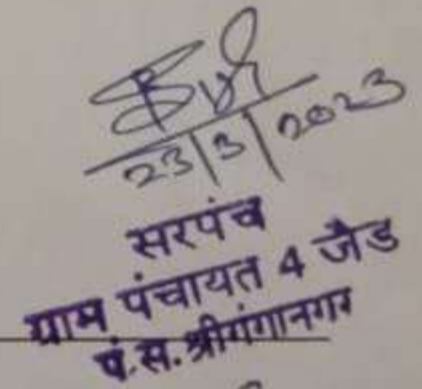 23/3/2023
सरपंच
ग्राम पंचायत 4 जैड
पं.स. श्रीगंगानगर